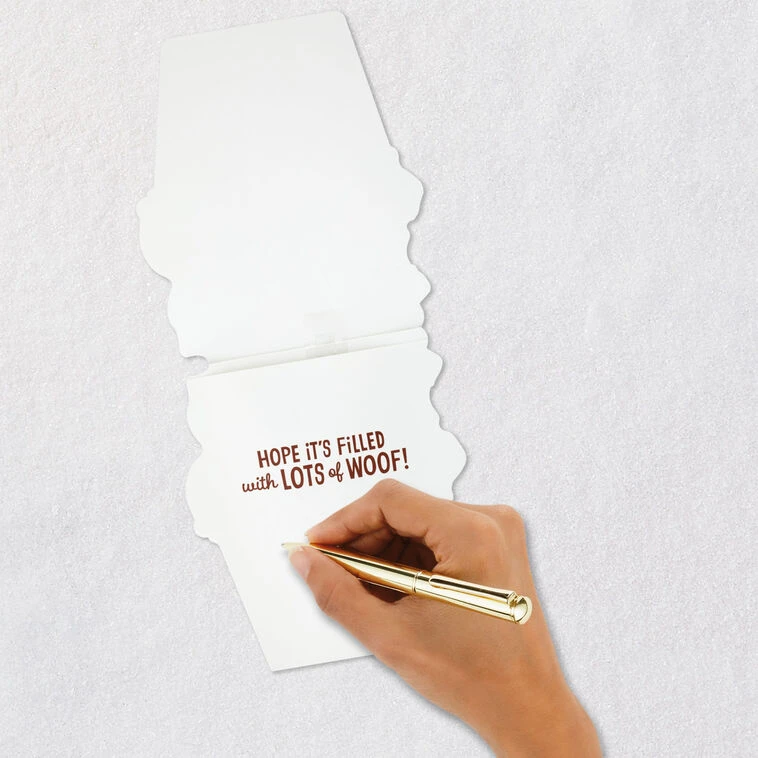 HOPE iT'S FiLLED
with LOTS of WOOF!